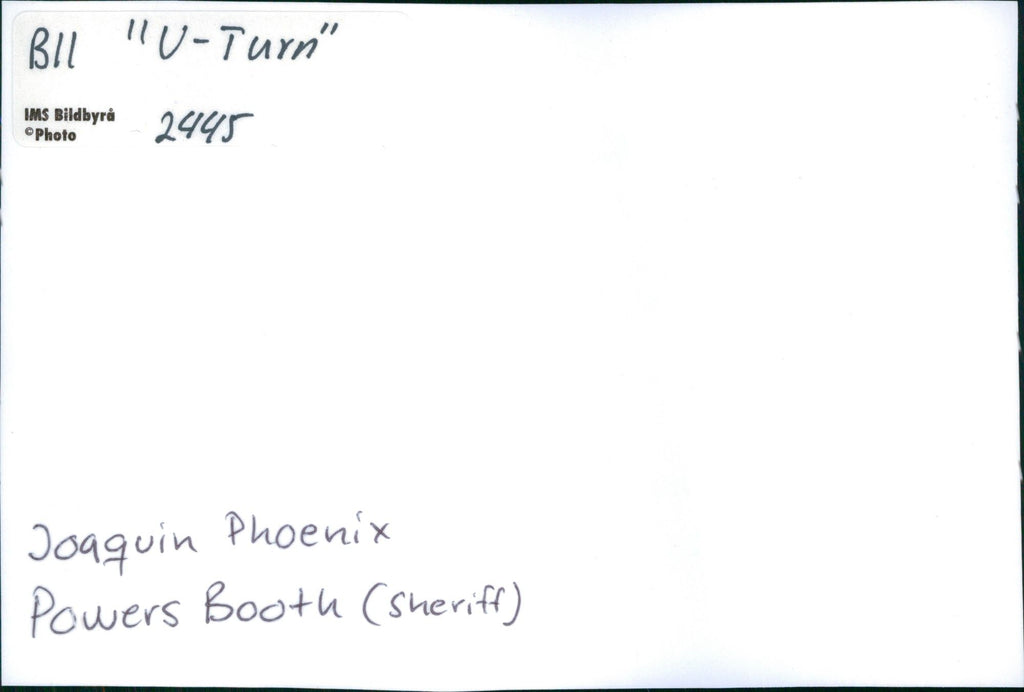 B11 "U-Turn"
IMS Bildbyrå
©Photo 2445
Joaquin Phoenix
Powers Booth (sheriff)